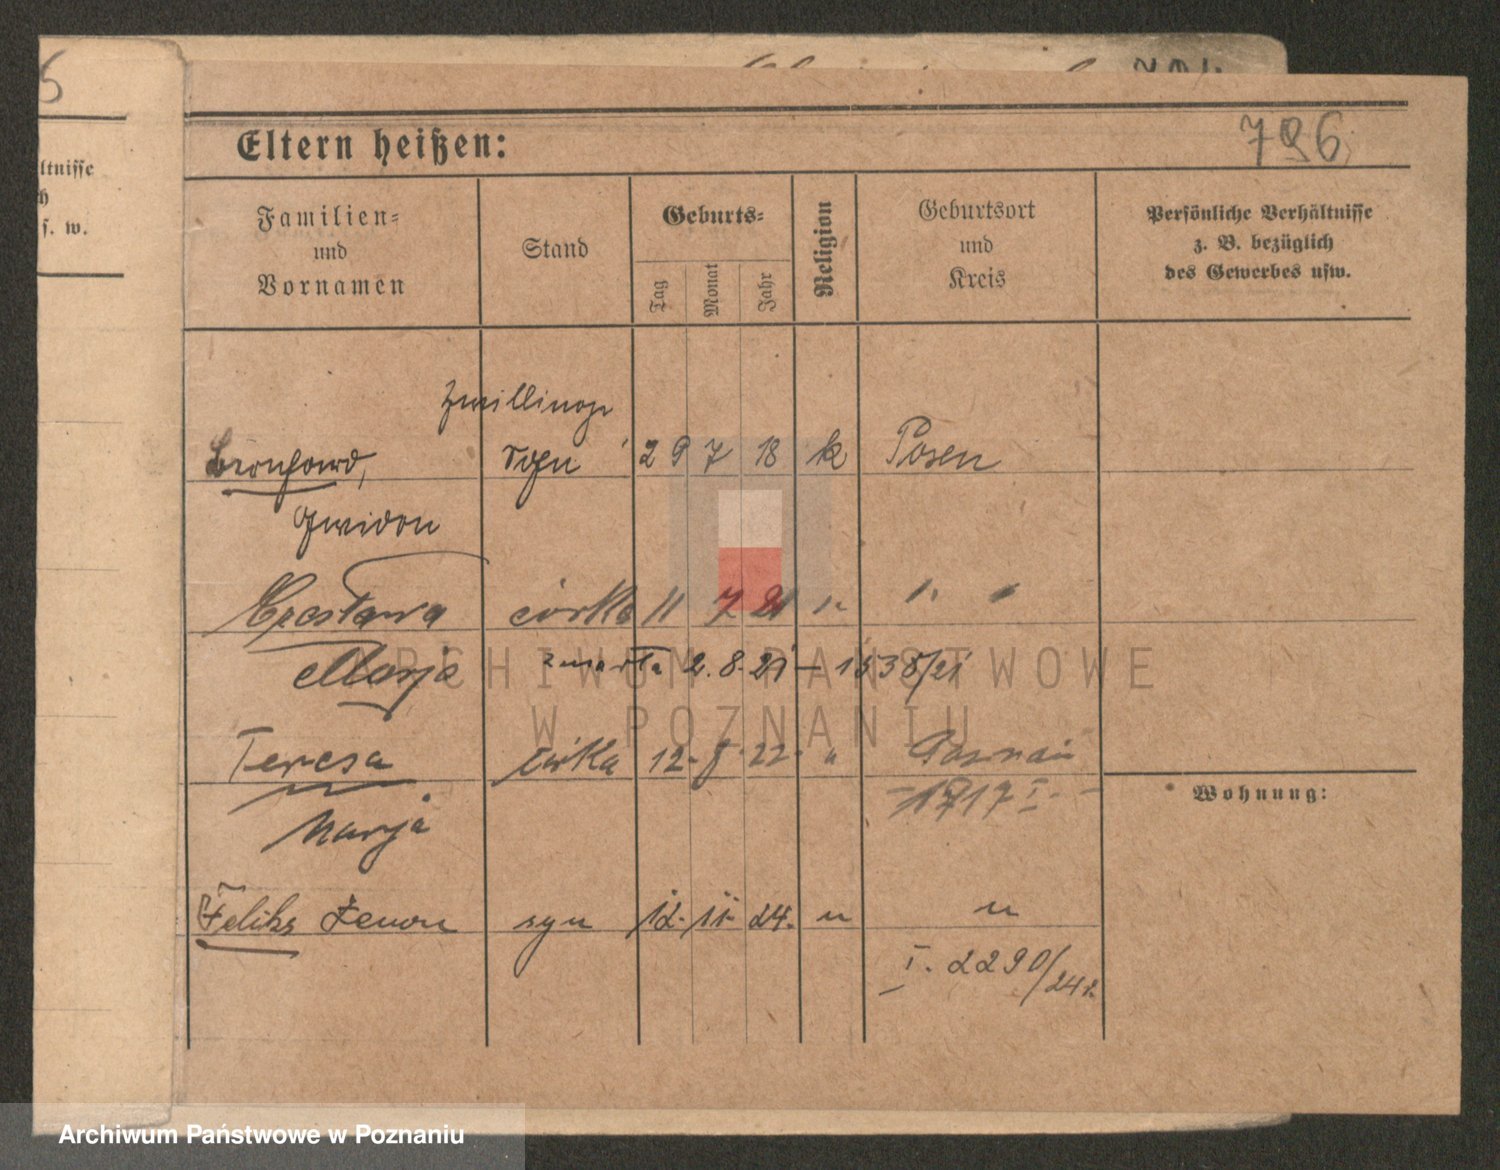 ltnisse
h
s. w.
Eltern heißen:
796
Familien-
und
Vornamen
Stand
Geburts-
Tag
Monat
Jahr
Religion
Geburtsort
und
Kreis
Persönliche Verhältnisse
z. B. bezüglich
des Gewerbes usw.
Zwillinge
Bernhard, Sohn 29 7 18 k Posen
Gwidon
Czesława córka 11 7 21
Marja zmarła 2.8.21 – 1535/21
Teresa córka 12. 8. 22 " Poznań
1717 I.
Marja
Wohnung:
Feliks Zenon syn 12. 11. 24. " "
I. 2290/24 r.
ARCHIWUM PAŃSTWOWE
W POZNANIU
Archiwum Państwowe w Poznaniu